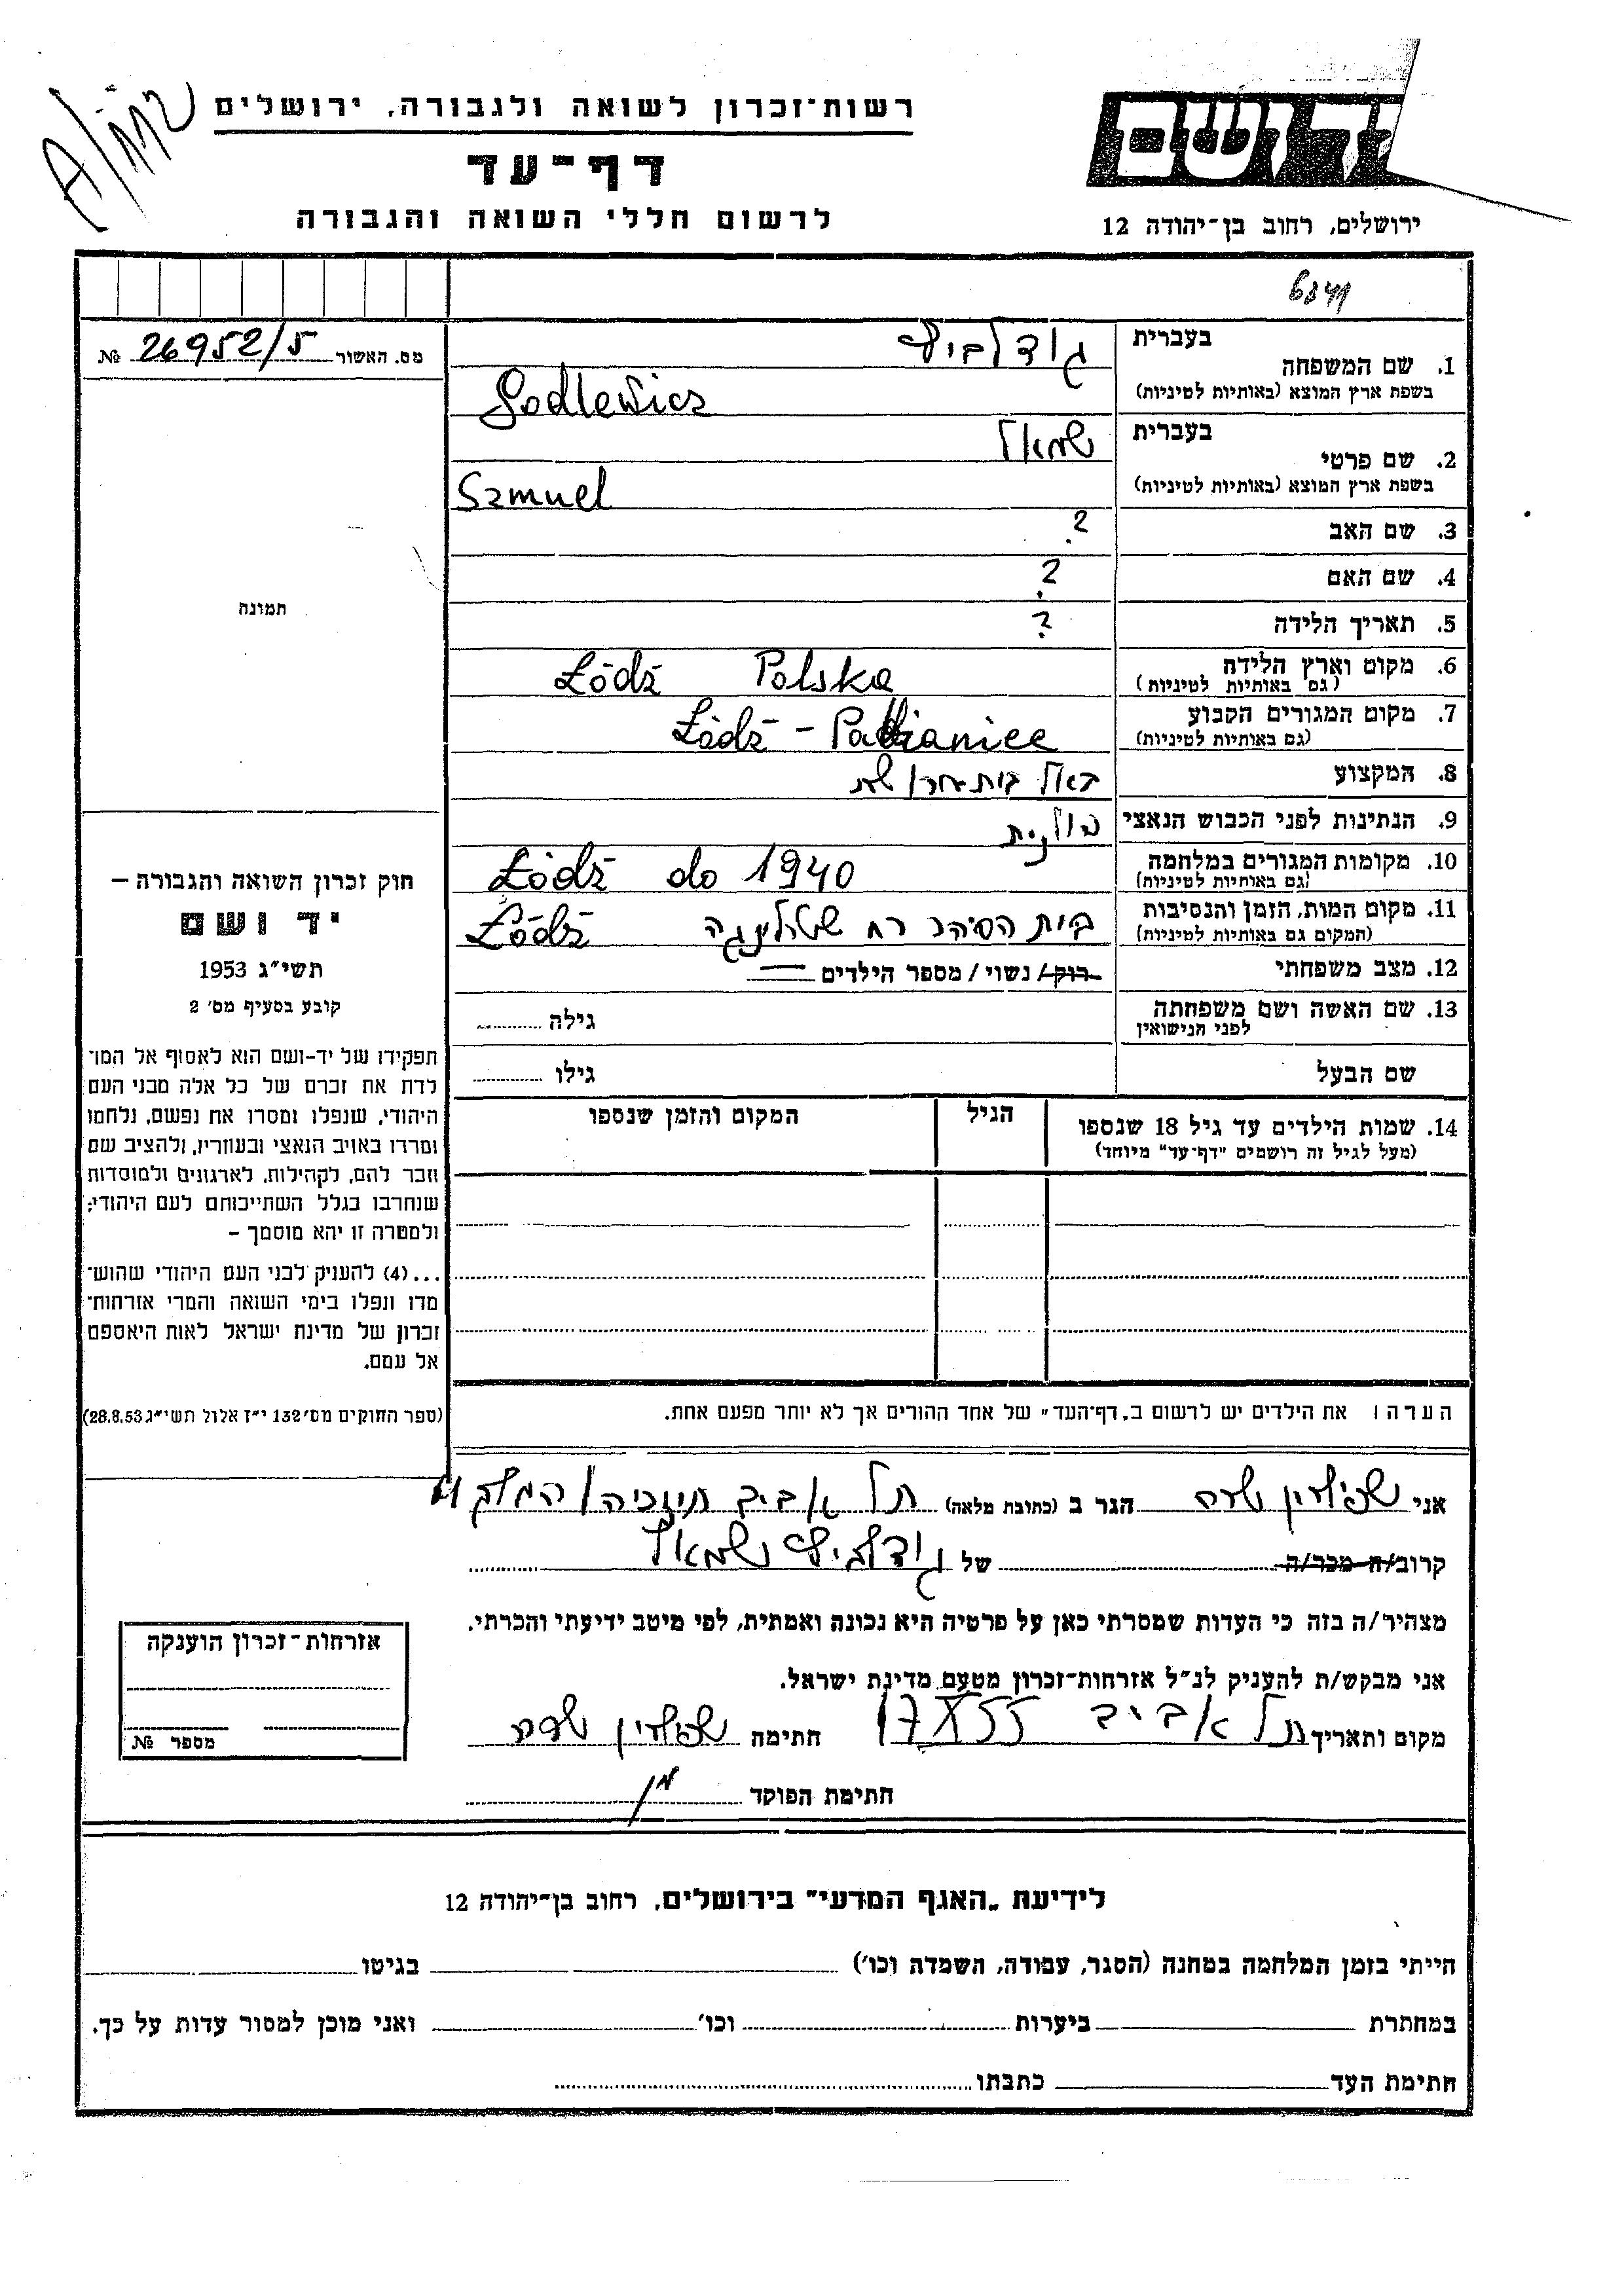 רשות־זכרון לשואה ולגבורה, ירושלים
דף־עד
לרשום חללי השואה והגבורה
ירושלים, רחוב בן־יהודה 12
מס. האשור 26952/5 №
תמונה
1. שם המשפחה
בעברית
גודלביץ
בשפת ארץ המוצא (באותיות לטיניות)
Godlewicz
2. שם פרטי
בעברית
שמואל
בשפת ארץ המוצא (באותיות לטיניות)
Szmuel
3. שם האב ?
4. שם האם ?
5. תאריך הלידה ?
6. מקום וארץ הלידה
(גם באותיות לטיניות)
Łódź Polska
7. מקום המגורים הקבוע
(גם באותיות לטיניות)
Łódź - Pabianice
8. המקצוע
בעל בית חרושת
9. הנתינות לפני הכבוש הנאצי פולנית
10. מקומות המגורים במלחמה
(גם באותיות לטיניות)
Łódź do 1940
11. מקום המות, הזמן והנסיבות
(המקום גם באותיות לטיניות)
בית הסוהר רח שטרלינגה Łódź
12. מצב משפחתי רוק/ נשוי / מספר הילדים
13. שם האשה ושם משפחתה
לפני הנישואין
גילה
שם הבעל גילו
14. שמות הילדים עד גיל 18 שנספו
(מעל לגיל זה רושמים "דף־עד" מיוחד)
הגיל
המקום והזמן שנספו
חוק זכרון השואה והגבורה –
יד ושם
תשי״ג 1953
קובע בסעיף מס׳ 2
תפקידו של יד-ושם הוא לאסוף אל המו־
לדת את זכרם של כל אלה מבני העם
היהודי, שנפלו ומסרו את נפשם, נלחמו
ומרדו באויב הנאצי ובעוזריו, ולהציב שם
וזכר להם, לקהילות, לארגונים ולמוסדות
שנחרבו בגלל השתייכותם לעם היהודי;
ולמטרה זו יהא מוסמך –
...(4) להעניק לבני העם היהודי שהוש־
מדו ונפלו בימי השואה והמרי אזרחות־
זכרון של מדינת ישראל לאות היאספם
אל עמם.
(ספר החוקים מס׳ 132 י״ז אלול תשי״ג 28.8.53)
הערה: את הילדים יש לרשום ב„דף־העד" של אחד ההורים אך לא יותר מפעם אחת.
אני שפילרין שרה הגר ב (כתובת מלאה) תל אביב
קרוב/ה מכר/ה של גודלביץ שמואל
מצהיר/ה בזה כי העדות שמסרתי כאן על פרטיה היא נכונה ואמתית, לפי מיטב ידיעתי והכרתי.
אני מבקש/ת להעניק לנ״ל אזרחות־זכרון מטעם מדינת ישראל.
מקום ותאריך תל אביב 17 X 55 חתימה שפילרין שרה
חתימת הפוקד
אזרחות־זכרון הוענקה
מספר №
לידיעת „האגף המדעי" בירושלים, רחוב בן־יהודה 12
הייתי בזמן המלחמה במחנה (הסגר, עבודה, השמדה וכו׳) בגיטו
במחתרת ביערות וכו׳ ואני מוכן למסור עדות על כך.
חתימת העד כתבתו